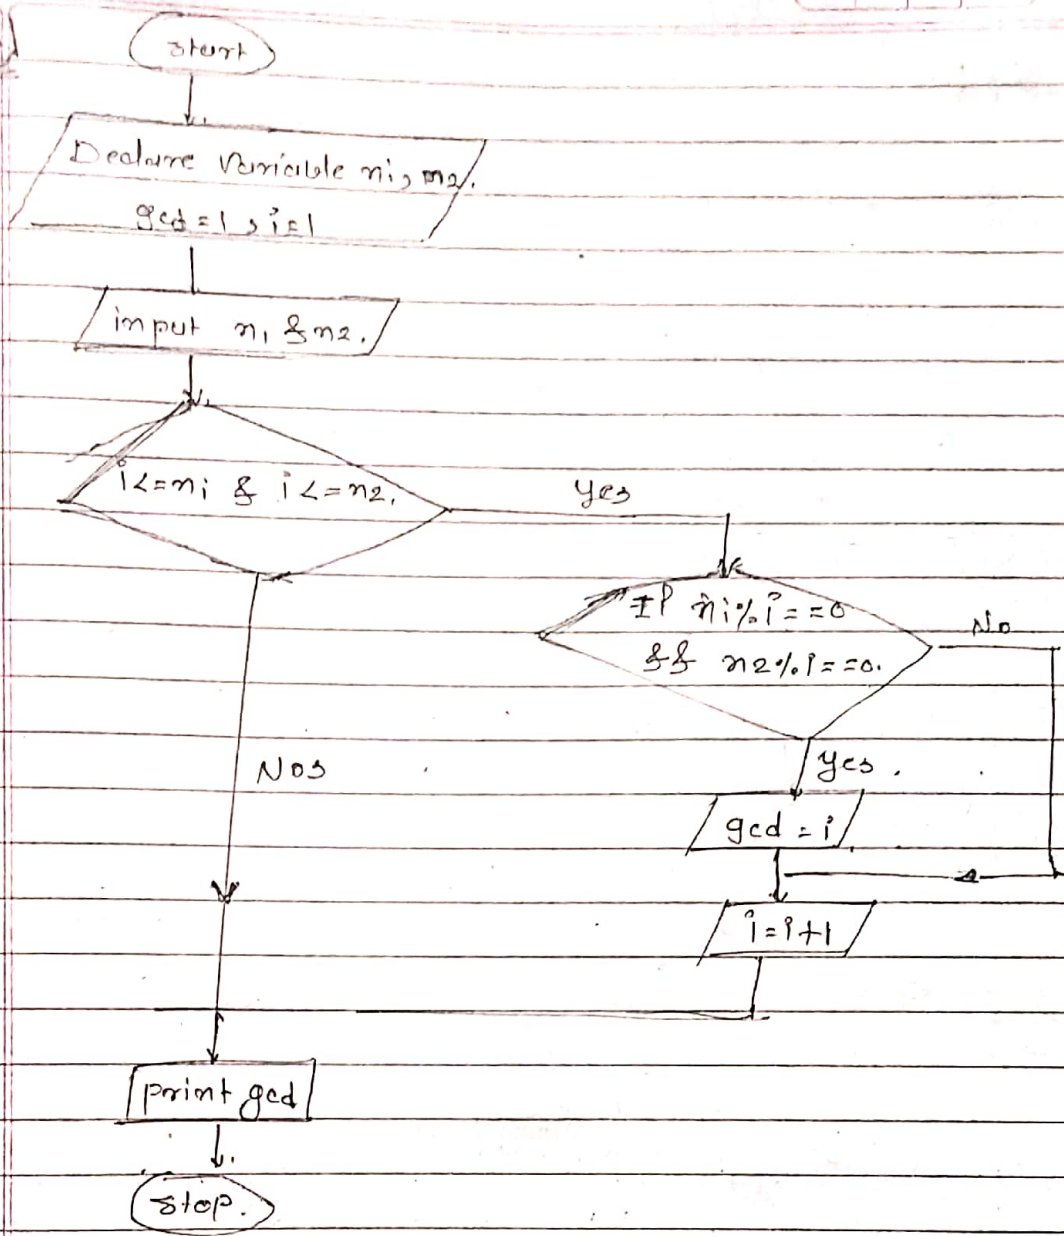 Start
Declare Variable n1, n2.
gcd = 1, i = 1
input n1 & n2.
i<=n1 & i<=n2.
Yes
If n1%i==0
&& n2%i==0.
No
Yes.
gcd = i
i=i+1
Nos
print gcd
Stop.